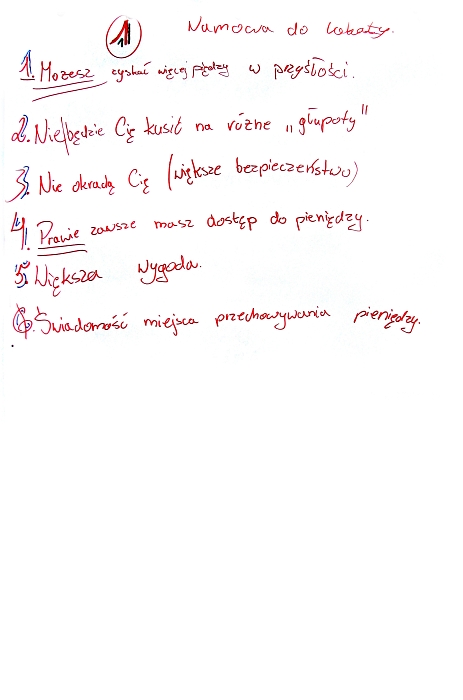 1 Namowa do lokaty.
1. Możesz zyskać więcej piędzy w przyśłości.
2. Nie będzie Cię kusić na różne „głupoty"
3. Nie okradą Cię (większe bezpieczeństwo)
4. Prawie zawsze masz dostęp do pieniędzy.
5. Większa wygoda.
6. Świadomość miejsca przechowywania pieniędzy.